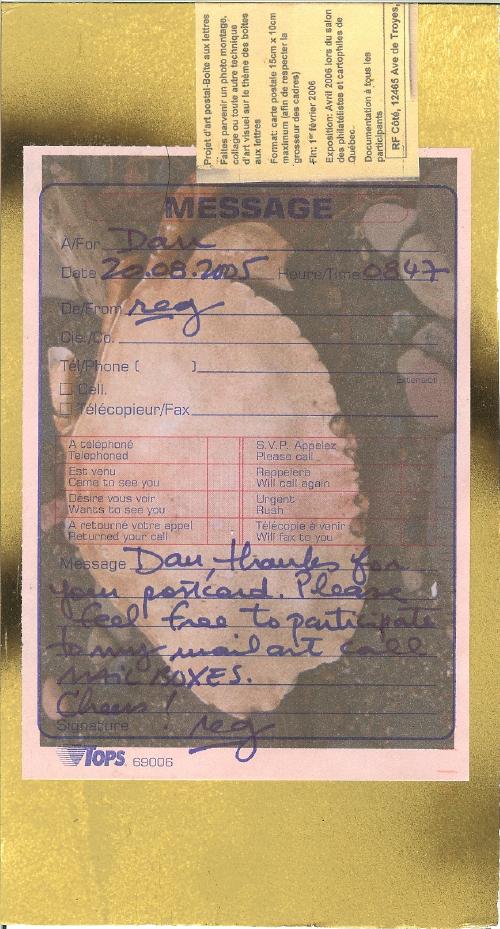 Projet d'art postal-Boîte aux lettres
Faites parvenir un photo montage,
collage ou toute autre technique
d'art visuel sur le thème des boîtes
aux lettres
Format: carte postale 15cm x 10cm
maximum (afin de respecter la
grosseur des cadres)
Fin: 1er février 2006
Exposition: Avril 2006 lors du salon
des philatélistes et cartophiles de
Québec.
Documentation à tous les
participants
RF Côté, 12465 Ave de Troyes,
MESSAGE
A/For Dan
Date 20.08.2005 Heure/Time 0847
De/From reg
Cie./Co.
Tél/Phone ( )
Extension
Cell.
Télécopieur/Fax
A téléphoné S.V.P. Appelez
Telephoned Please call
Est venu Rappelera
Came to see you Will call again
Désire vous voir Urgent
Wants to see you Rush
A retourné votre appel Télécopie à venir
Returned your call Will fax to you
Message Dan, thanks for
your postcard. Please
feel free to participate
to my mail art call
MAIL BOXES.
Cheers!
Signature reg
TOPS 69006